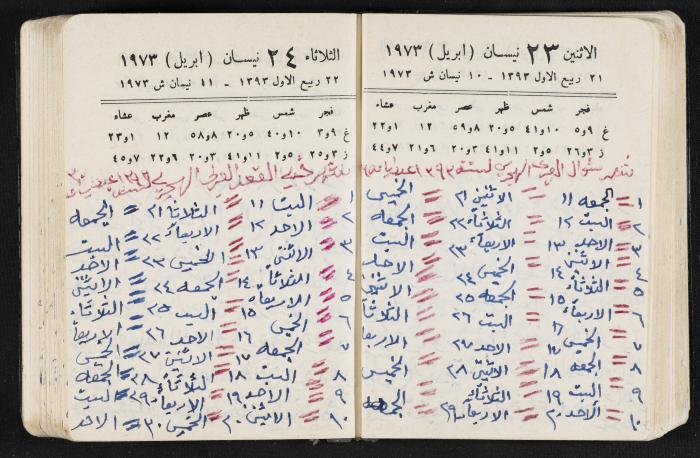 الاثنين ٢٣ نيسان (ابريل) ١٩٧٣
٢١ ربيع الاول ١٣٩٣ - ١٠ نيسان ش ١٩٧٣
فجر شمس ظهر عصر مغرب عشاء
غ ٩و٥ ١٠و٤١ ٥و٢٠ ٨و٥٩ ١٢ ١و٢٢
ز ٣و٢٦ ٥و٢ ١١و٤١ ٣و٢٠ ٦و٢١ ٧و٤٤
شهر شوال الهجري لسنة ١٣٩٣
١ = الجمعه ١١ = الاثنين ٢١ = الخميس
٢ = السبت ١٢ = الثلاثاء ٢٢ = الجمعه
٣ = الاحد ١٣ = الاربعاء ٢٣ = السبت
٤ = الاثنين ١٤ = الخميس ٢٤ = الاحد
٥ = الثلاثاء ١٥ = الجمعه ٢٥ = الاثنين
٦ = الاربعاء ١٦ = السبت ٢٦ = الثلاثاء
٧ = الخميس ١٧ = الاحد ٢٧ = الاربعا
٨ = الجمعه ١٨ = الاثنين ٢٨ = الخميس
٩ = السبت ١٩ = الثلاثاء ٢٩ = الجمعه
١٠ = الاحد ٢٠ = الاربعاء
الثلاثاء ٢٤ نيسان (ابريل) ١٩٧٣
٢٢ ربيع الاول ١٣٩٣ - ١١ نيسان ش ١٩٧٣
فجر شمس ظهر عصر مغرب عشاء
غ ٩و٣ ١٠و٤٠ ٥و٢٠ ٨و٥٨ ١٢ ١و٢٣
ز ٣و٢٥ ٥و٢ ١١و٤١ ٣و٢٠ ٦و٢٢ ٧و٤٥
شهر ذي القعدة الهجري
١ = السبت ١١ = الثلاثاء ٢١ = الجمعه
٢ = الاحد ١٢ = الاربعاء ٢٢ = السبت
٣ = الاثنين ١٣ = الخميس ٢٣ = الاحد
٤ = الثلاثا ١٤ = الجمعه ٢٤ = الاثنين
٥ = الاربعاء ١٥ = السبت ٢٥ = الثلاثاء
٦ = الخميس ١٦ = الاحد ٢٦ = الاربعا
٧ = الجمعه ١٧ = الاثنين ٢٧ = الخميس
٨ = السبت ١٨ = الثلاثاء ٢٨ = الجمعه
٩ = الاحد ١٩ = الاربعاء ٢٩ = السبت
١٠ = الاثنين ٢٠ = الخميس ٣٠ = الاحد